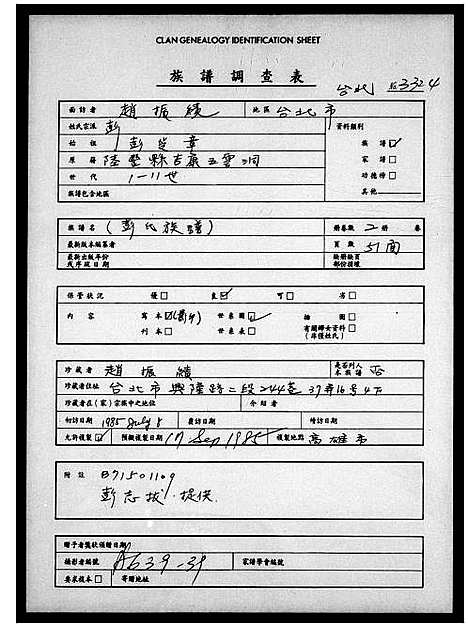 CLAN GENEALOGY IDENTIFICATION SHEET
族譜調查表
台北 3324
面訪者 趙振績 地區 台北市
姓氏宗派 彭 資料類別
始祖 彭延章 族譜☑
原籍 陸豐縣吉康五雲洞 家譜□
世代 1-11世 功德榜□
族譜包含地區 其他
族譜名 (彭氏族譜) 冊卷數 2 冊 卷
最新版本編纂者 頁數 51面
最新出版年份或序跋日期 缺冊缺頁部份損壞
保管狀況 優□ 良☑ 可□ 劣□
內容 寫本☑(影印) 世系圖☑ 插圖□
刊本□ 世系表□ 有關婦女資料□(非僅姓氏)
珍藏者 趙振績 是否列入本族譜 否
珍藏者住址 台北市興隆路二段244巷37弄16号4下
珍藏者在(家)宗族中之地位 介紹者
初訪日期 1985 July 8 複訪日期 續訪日期
允許複製☑ 預擬複製日期 17 Sep 1985 複製地點 高雄市
附註 B71501109
彭志拔 提供
贈予者獎狀頒贈日期
攝影者編號 A639-39 家譜學會編號
要求複本□ 寄贈地址